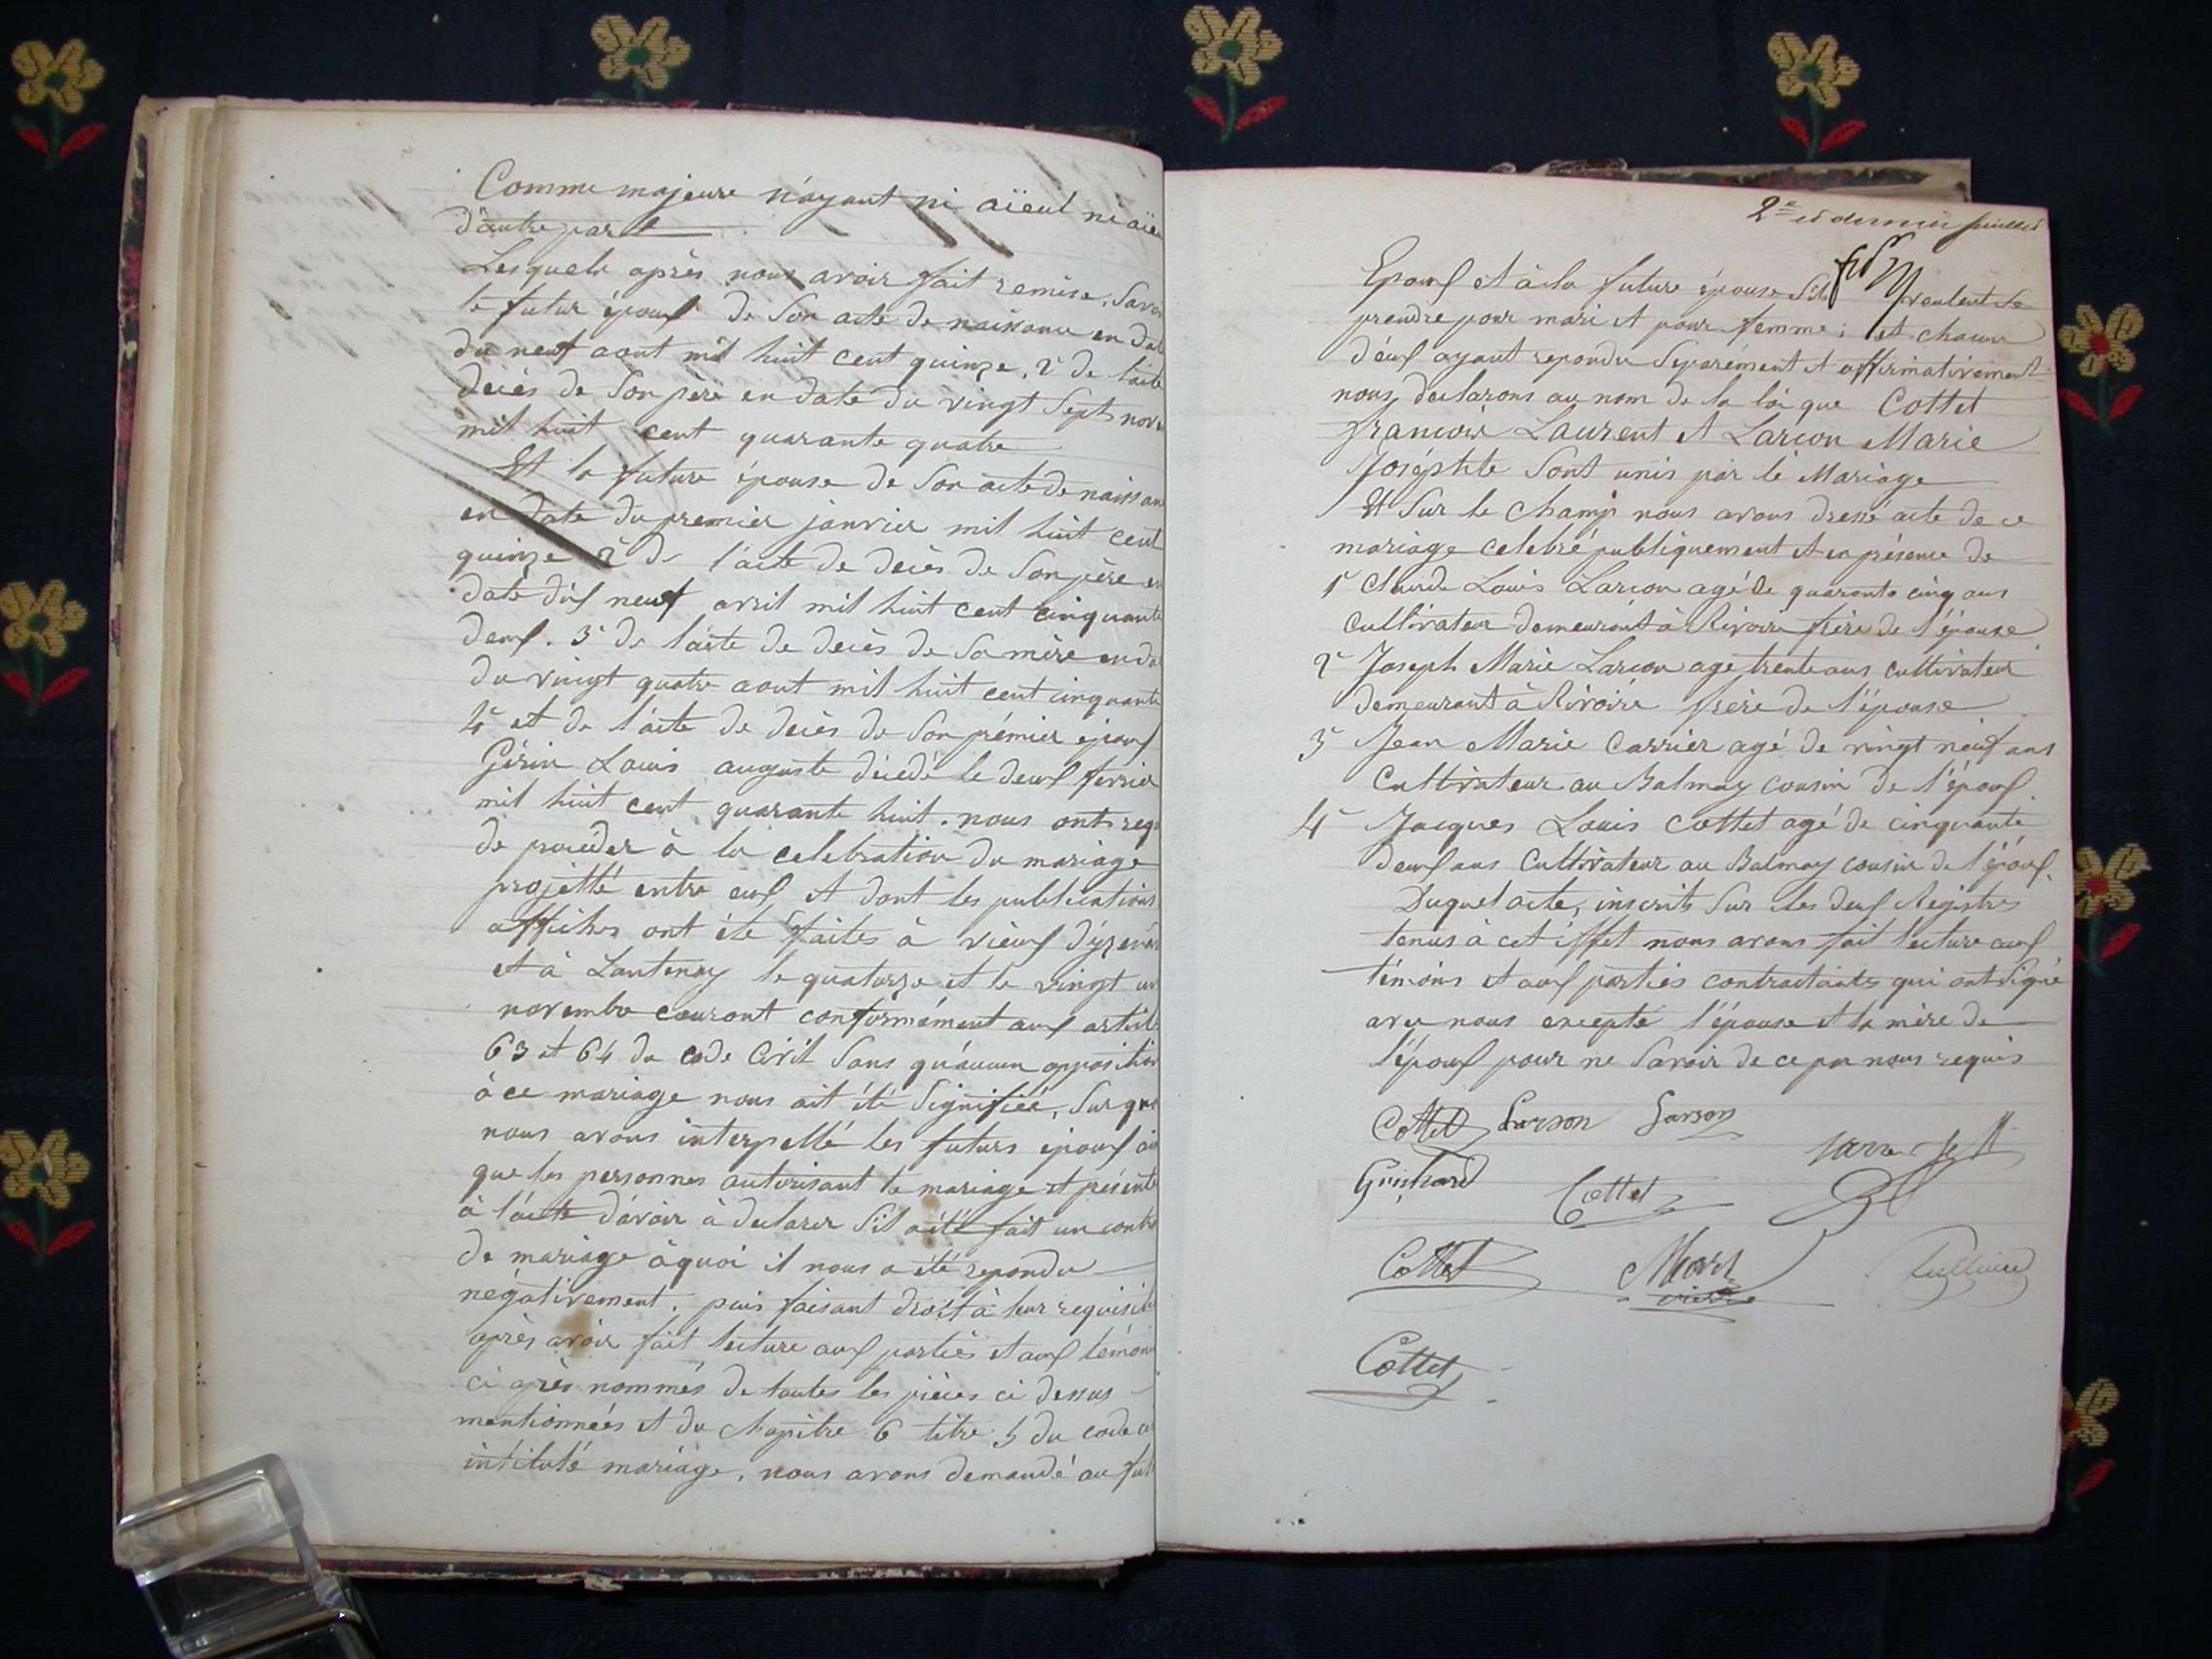 Comme majeure n'ayant ni aïeul ni aïeu
d'autre part
Lesquels après nous avoir fait remise, Savoi
le futur époux de Son acte de naissance en dat
du neuf aout mil huit cent quinze, 2° de l'acte
décès de Son père en date du vingt Sept nov
mil huit cent quarante quatre
Et la future épouse de Son acte de naissan
en date du premier janvier mil huit cent
quinze 2° de l'acte de décès de Son père en
date dix neuf avril mil huit cent cinquante
deux. 3° de l'acte de décès de Sa mère en da
du vingt quatre aout mil huit cent cinquante
4° et de l'acte de décès de Son prémier époux
Louis auguste décedé le deux fevrier
mil huit cent quarante huit. nous ont requ
de proceder à la celebration du mariage
projetté entre eux et dont les publications
affiches ont été faites à vieux d'yzena
et à Lantenay le quatorze et le vingt un
novembre courant conformément aux article
63 et 64 du code Civil Sans qu'aucun opposition
à ce mariage nous ait été Signifiée, Sur quoi
nous avons interpellé les futurs époux ai
que les personnes autorisant le mariage et présente
à l'acte d'avoir à declarer S'il a été fait un contr
de mariage à quoi il nous a été repondu
négativement. puis faisant droit à leur requisit
après avoir fait lecture aux partiès et aux témoin
ci après nommés de toutes les pièces ci dessus
mentionnées et du chapitre 6 titre 5 du code ci
intitulé mariage, nous avons demandé au fut
2e et dernier feuillet
Epoux et à la future épouse S'ils veulent Se
prendre pour mari et pour femme; et chacun
d'éux ayant repondu Séparément et affirmativement
nous declarons au nom de la loi que Cottet
françois Laurent et Larçon Marie
Joséphte Sont unis par le Mariage
Et Sur le champ nous avons dressé acte de ce
mariage celebré publiquement et en présence de
1° Claude Louis Larçon agé de quarante cinq ans
Cultivateur demeurant à Rivoire frère de l'épouse
2° Joseph Marie Larçon age trente ans cultivateur
demeurant à Rivoire frère de l'épouse
3° Jean Marie Carrier agé de vingt neuf ans
Cultivateur au Balmay cousin de l'époux
4° Jacques Louis Cottet agé de cinquante
deux ans Cultivateur au Balmay cousin de l'époux.
Duquel acte, inscrits Sur les deux Registres
tenus à cet éffet nous avons fait lecture aux
témoins et aux partiès contractants qui ont Signé
avec nous excepté l'épouse et la mère de
l'époux pour ne Savoir de ce par nous requis
Cottet Larson Larson
Guichard Cottet
Cottet
Cottet